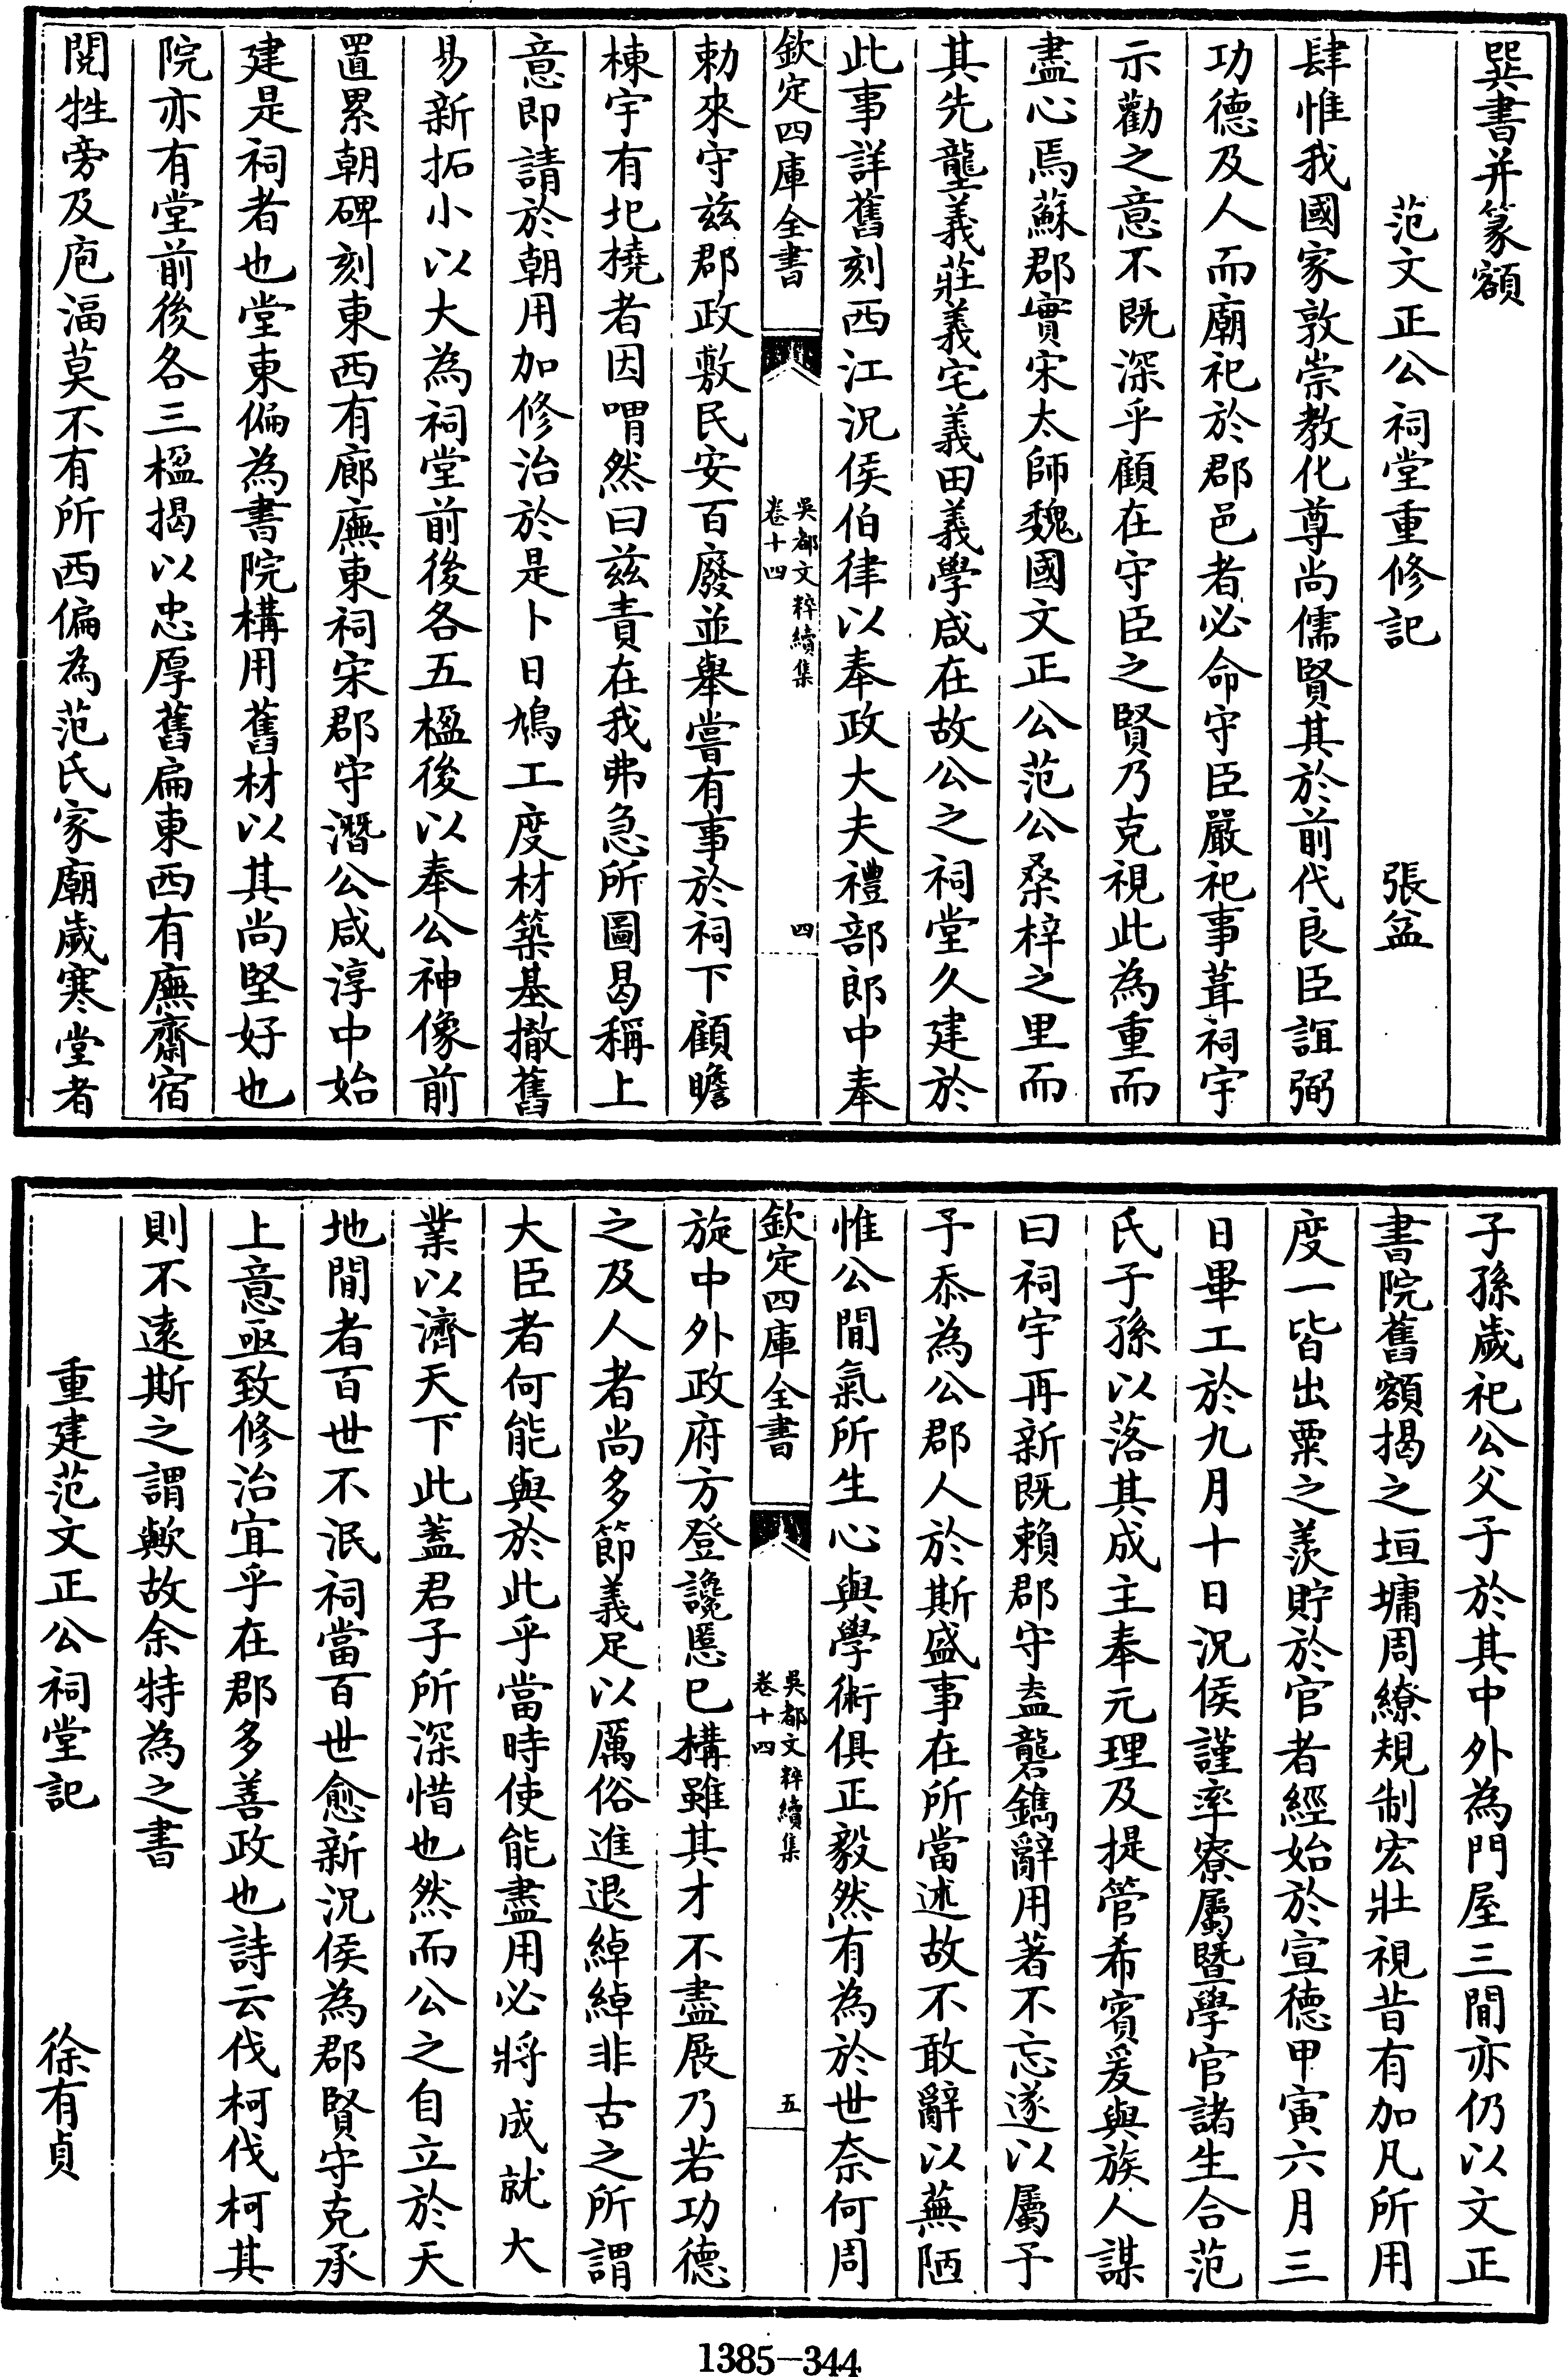 巽書并篆額
范文正公祠堂重修記 張益
肆惟我國家敦崇教化尊尚儒賢其於前代良臣誼弼
功德及人而廟祀於郡邑者必命守臣嚴祀事葺祠宇
示勸之意不既深乎顧在守臣之賢乃克視此為重而
盡心焉蘇郡實宋太師魏國文正公范公桑梓之里而
其先壟義莊義宅義田義學咸在故公之祠堂久建於
此事詳舊刻西江況侯伯律以奉政大夫禮部郎中奉
欽定四庫全書
吳都文粹續集
卷十四
四
勅來守兹郡政敷民安百廢並舉嘗有事於祠下顧瞻
棟宇有圮撓者因喟然曰兹責在我弗急所圖曷稱上
意即請於朝用加修治於是卜日鳩工度材築基撤舊
易新拓小以大為祠堂前後各五楹後以奉公神像前
置累朝碑刻東西有廊廡東祠宋郡守潛公咸淳中始
建是祠者也堂東偏為書院構用舊材以其尚堅好也
院亦有堂前後各三楹揭以忠厚舊扁東西有廡齋宿
閱牲旁及庖湢莫不有所西偏為范氏家廟歲寒堂者
子孫歲祀公父子於其中外為門屋三間亦仍以文正
書院舊額揭之垣墉周繚規制宏壯視昔有加凡所用
度一皆出粟之羨貯於官者經始於宣德甲寅六月三
日畢工於九月十日況侯謹率寮屬暨學官諸生合范
氏子孫以落其成主奉元理及提管希賓爰與族人謀
曰祠宇再新既賴郡守盍礱鐫辭用著不忘遂以屬予
予忝為公郡人於斯盛事在所當述故不敢辭以蕪陋
惟公間氣所生心與學術俱正毅然有為於世奈何周
欽定四庫全書
吳都文粹續集
卷十四
五
旋中外政府方登讒慝已構雖其才不盡展乃若功德
之及人者尚多節義足以厲俗進退綽綽非古之所謂
大臣者何能與於此乎當時使能盡用必將成就大
業以濟天下此蓋君子所深惜也然而公之自立於天
地間者百世不泯祠當百世愈新況侯為郡賢守克承
上意亟致修治宜乎在郡多善政也詩云伐柯伐柯其
則不遠斯之謂歟故余特為之書
重建范文正公祠堂記 徐有貞
1385-344